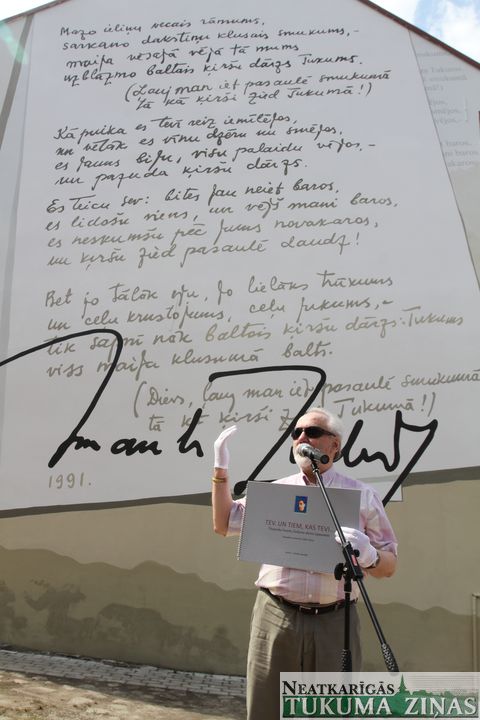 Mazo ieliņu vecais rāmums,
sarkano dakstiņu klusais smukums,-
maija vēsajā vējā tā mums
uzblāzmo baltais ķiršu dārzs Tukums.
(Ļauj man iet pasaulē smukumā
tā kā ķirši zied Tukumā!)
Kā puika es tevi reiz iemīlējos,
un vēlāk es vīnu dzēru un smējos,
es jauns biju, visu palaidu vējos,-
un pazuda ķiršu dārzs.
Es teicu sev: bites jau neiet baros,
es lidošu viens, un vējš mani baros,
es neskumšu pēc jums novakaros,
nu ķiršu zied pasaulē daudz!
Bet jo tālāk eju, jo lielāks trūkums
un ceļu krustojums, ceļu jukums,-
tik sapnī nāk baltais ķiršu dārzs. Tukums
viss maija klusumā balts.
(Dievs, ļauj man iet pasaulē smukumā
tā kā ķirši zied Tukumā!)
1991.
TEV, UN TIEM, KAS TEVI
NEATKARĪGĀS
TUKUMA ZIŅAS